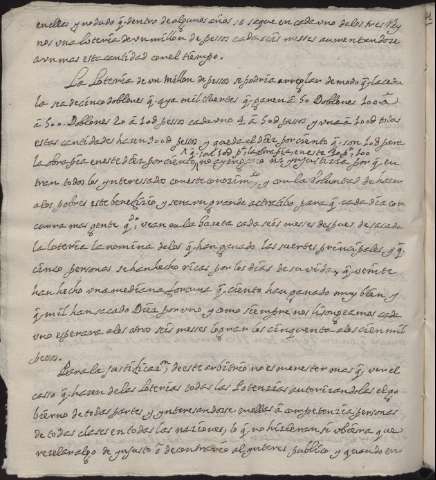 en ellas y no dudo q. dentro de algunos años se saque en cada uno de los tres Rey
nos una lotería de un millon de pesos cada seis meses aumentandose
aun mas esta cantidad con el tiempo.
La Lotería de un Millon de pesos se podria arreglar de modo q.
sea de cinco doblones q. aya mil suertes q. ganen à 50 Doblones 100 à
à 500 Doblones 20 à 10d pesos cada uno 4 à 50d pesos, y una à 100d todas
estas cantidades hasen 900d pesos y queda el diez por ciento q. son 100d para
la obra pia en este diez por ciento no ay engaño ni ynjusticia por q. en
tran todos los ynteressados con este conosim.to y con la voluntad de hacer
a los pobres este beneficio y sera un grande atractibo para q. cada dia con
curra mas gente q.do vean en la Gaseta cada seis meses despues de sacada
la lotería la nomina de los q. han ganado las suertes principales y q.
cinco personas se han hecho ricas por los dias de su vida y q. veinte
han hecho una mediana fortuna q. ciento han ganado muy bien y
q. mil han sacado Diez por uno, y como siempre nos lisongeamos cada
uno esperara a los otros seis meses lograr los cinquenta a los cien mil
pesos.
Para la justificaz.n de este arbitrio no es menester mas q. ver el
casso q. hasen de las loterias todas las Potencias autorizandolas el go-
bierno de todas partes y ynteresandose en ellas à competencia personas
de todas clases en todas las naciones, lo q. no hisieran si ubiera que
reselar algo de ynjusto ò de contrario al ynteres publico y quando en